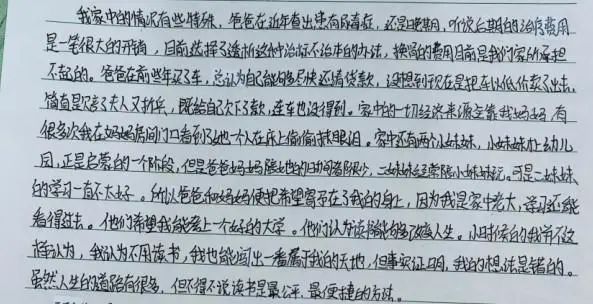 我家中的情况有些特殊，爸爸在近年查出患有尿毒症，还是晚期，听说后期的治疗费用
是一笔很大的开销，目前选择了透析这种治标不治本的办法，换肾的费用目前是我们家所承担
不起的。爸爸在前些年买了车，总认为自己能够尽快还清贷款，没想到现在是把车以低价卖了出去，
简直是欠了夫人又折兵，既给自己欠下了款，连车也没得到。家中的一切经济来源交靠我妈妈，有
很多次我在妈妈房间门口看到了她一个人在床上偷偷抹眼泪。家中还有两个小妹妹，小妹妹才上幼儿
园，正是启蒙的一个阶段，但是爸爸妈妈陪她的时间都很少，二妹妹经常陪小妹妹玩。可是二妹妹
的学习一直不太好。所以爸爸和妈妈便把希望寄存在了我的身上，因为我是家中老大，学习还能
看得过去。他们希望我能考上一个好的大学。他们认为读书能够改变人生。小时候的我并不这
样认为，我认为不用读书，我也能闯出一番属于我的天地，但事实证明，我的想法是错的。
虽然人生的道路有很多，但不得不说读书是最公平、最便捷的方法。